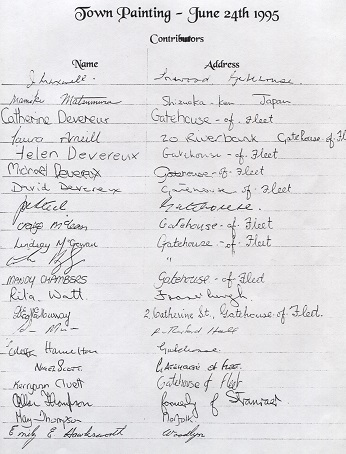 Town Painting - June 24th 1995
Contributors
Name Address
J. Maxwell Gatehouse
Manuku Matsumura Shizuoka - Ken Japan
Catherine Devereux Gatehouse - of - Fleet
Laura 20 Riverbank Gatehouse of Fl
Helen Devereux Gatehouse - of - Fleet
Michael Devereux Gatehouse - of - Fleet
David Devereux Gatehouse of Fleet
Gatehouse.
Gatehouse - of - Fleet
Lindsey McGowan Gatehouse - of - Fleet
"
MANDY CHAMBERS Gatehouse - of Fleet
Rita Watt Fraserburgh
2, Catherine St, Gatehouse of Fleet.
Hamilton Gatehouse
Scott. Gatehouse of Fleet.
Kerryann Cluett Gatehouse of Fleet
Allan Thompson formerly of Stanraer
May Thompson Norfolk
Emily E Hawksworth